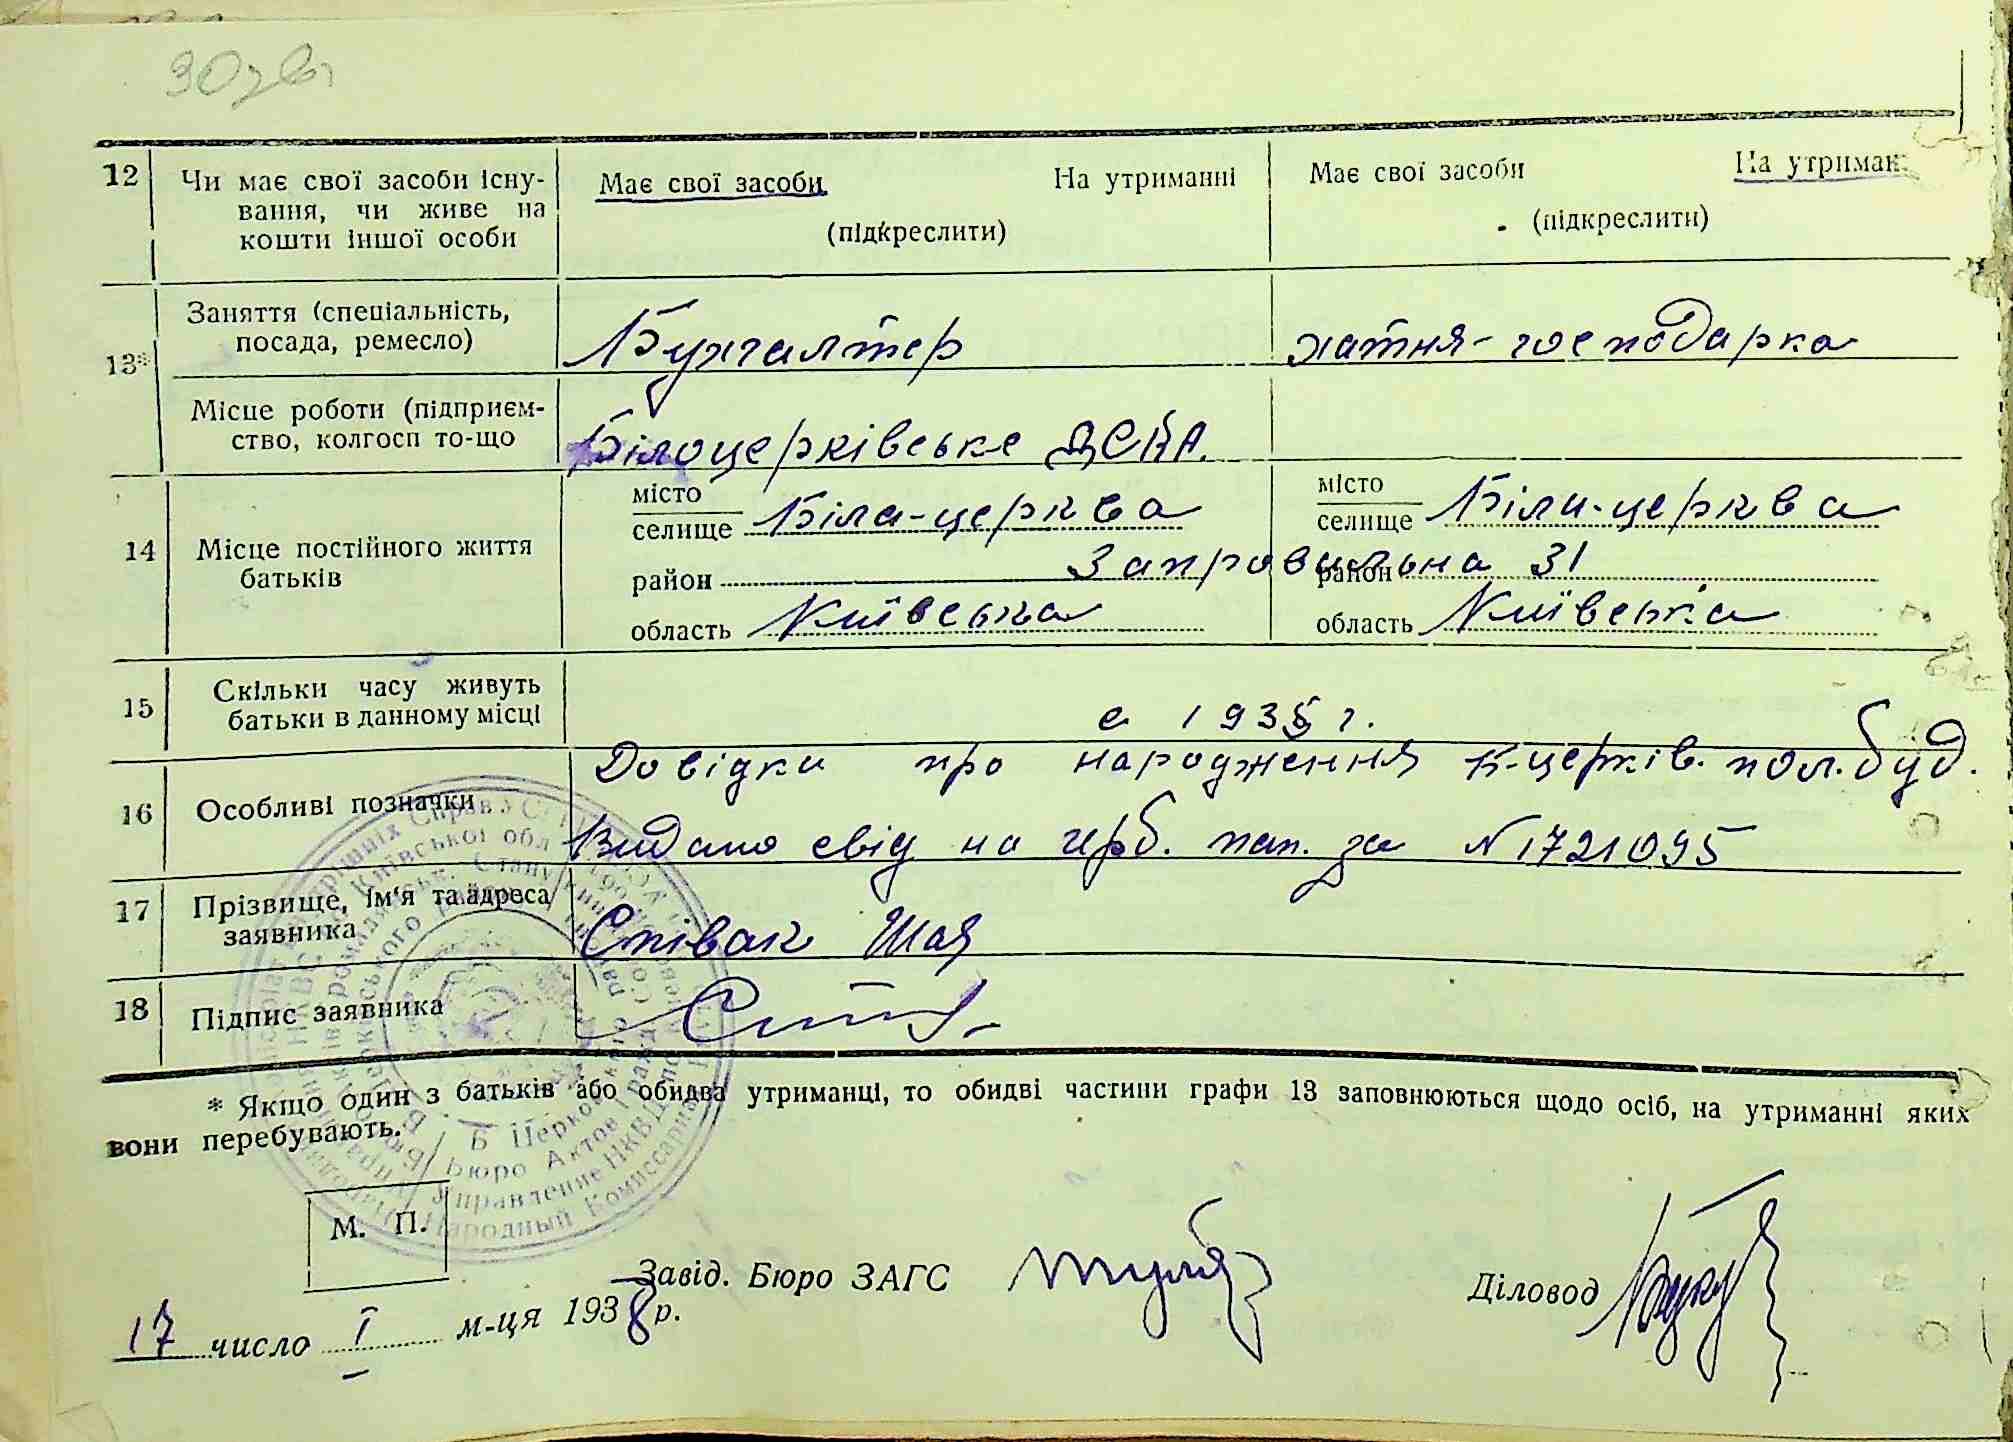 30 зв
12 Чи має свої засоби існу-
вання, чи живе на
кошти іншої особи
Має свої засоби На утриманні
(підкреслити)
Має свої засоби На утриман
(підкреслити)
13* Заняття (спеціальність,
посада, ремесло)
Бухгалтер
хатня-господарка
Місце роботи (підприєм-
ство, колгосп то-що
Білоцерківське
14 Місце постійного життя
батьків
місто
селище Біла-церква
район Запровальна 31
область Київська
місто
селище Біла-церква
район
область Київська
15 Скільки часу живуть
батьки в данному місці
с 1935 г.
16 Особливі позначки
Довідки про народження Б-церків. пол. буд.
Видано свід на герб. пап. за №1721095
17 Прізвище, ім'я та адреса
заявника
Співак Шая
18 Підпис заявника
* Якщо один з батьків або обидва утриманці, то обидві частини графи 13 заповнюються щодо осіб, на утриманні яких
вони перебувають.
М. П.
Завід. Бюро ЗАГС
Діловод
17 число I м-ця 1938 р.